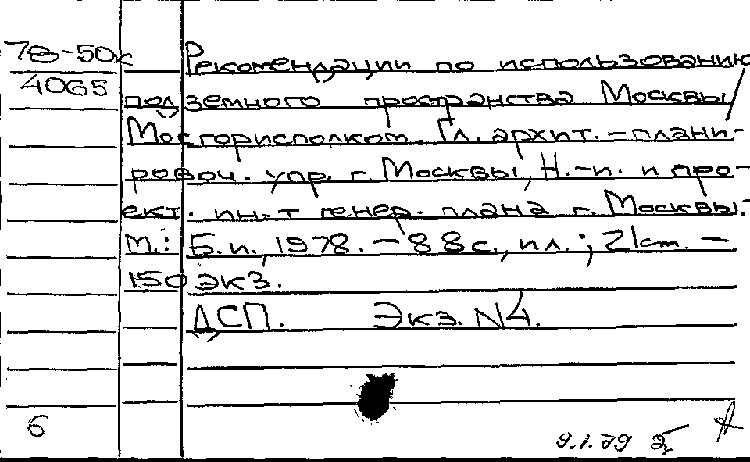 78-50к Рекомендации по использованию
4065 подземного пространства Москвы /
Мосгорисполком. Гл. архит. - плани-
ровоч. упр. г. Москвы, Н.-и. и про-
ект. ин-т генер. плана г. Москвы. -
М.: Б.и., 1978. - 88 с., ил.; 21 cm. -
150 экз.
ДСП. Экз. N4.
6
9.1.79